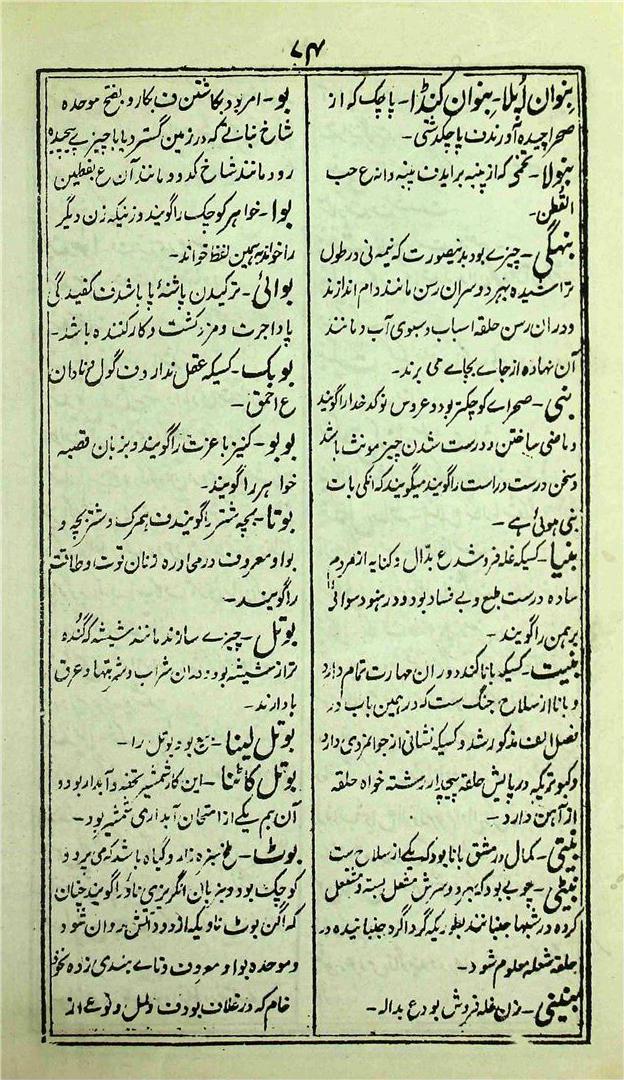 ۷۴
بِنوان اُپلا۔ بِنوان کنڈا۔ پاچک کہ از
صحرا چیدہ آورند ف پاچکدشتی۔
بنولا۔ تخمی کہ از پنبہ براید ف پنبہ دانہ ع حب
القطن۔
بنہگی۔ چیزے بود بدینصورت کہ نیمہ نی در طول
تراشیدہ بہر دو سر آن رسن مانند دام اندازند
و در ان رسن حلقہ اسباب و سبوی آب و مانند
آن نہادہ از جاے بجاے می برند۔
بنی۔ صحراے کوچکتر بود و عروس نو کدخدا را گویند
و ماضی ساختن و درست شدن چیز مونث باشد
و سخن درست و راست را گویند میگویند کہ انکی بات
بنی ہوئی ہے۔
بنیا۔ کسیکہ غلہ فروشد ع بدّال و کنایہ از مردم
سادہ درست بلیغ و بے فساد بود و در ہنود سوائی
برہمن را گویند۔
بنیت۔ کسیکہ بانا کند و در ان مہارت تمام دارد
و بانا از سلاح جنگ ست کہ در ہمین باب در
فصل الف مذکور شد و کسیکہ نشانی از جوانمردی دارد
و کبوتریکہ در پایش حلقہ پیچدار رشتہ خواہ حلقہ
از آہن دارد۔
بنیتی۔ کمال در مشق بانا بود کہ یکے از سلاح ست
بنیٹی۔ چوبے بود کہ بہر دو سرش مشعل بستہ و مشتعل
کردہ در شبہا جنبانند بطوریکہ گرداگرد جنبانیدہ در
حلقہ شعلہ معلوم شود۔
بنینی۔ زن غلہ فروش بود ع بدالہ۔
بو۔ امر بود بکاشتن ف بکار و بفتح موحدہ
شاخ نباتے کہ در زمین گستردہ یا با چیزے پیچیدہ
رود مانند شاخ کدو و مانند آن ع یقطین
بوا۔ خواہر کوچک را گویند و زنیکہ زن دیگر
را خواند بہمین لفظ خواند۔
بوائی۔ ترکیدن پاشنۂ پا باشد ف کفیدگی
پا و اجرت و مزد کشت و کار کنندہ باشد۔
بوبک۔ کسیکہ عقل ندارد ف گول و نادان
ع احمق۔
بوبو۔ کنیز با عزت را گویند و بزبان قصبہ
خواہر را گویند۔
بوتا۔ بچہ شتر را گویند ف ہمرک و شتر بچہ و
بواو معروف در محاورہ زنان قوت و طاقت
را گویند۔
بوتل۔ چیزے سازند مانند شیشہ کہ گندہ
تر از شیشہ بود و دران شراب و شربتہا و عرق
ہا دارند۔
بوتل لینا۔ بیع بود بوتل را۔
بوتل کاٹنا۔ این کار شمشیر تحفہ و آبدار بود و
آن ہم یکے از امتحان آبداری شمشیر بود۔
بوٹ۔ ملخ سبزہ زار و گیاہ باشد کہ می پرد و
کوچک بود و بزبان انگریزی ناو را گویند چنان
کہ اگن بوٹ ناویکہ از دود آتش روان شود
و موحدہ بواو معروف و تاے ہندی زدہ نخود
خام کہ در غلاف بود ف دلمل و نوعے از